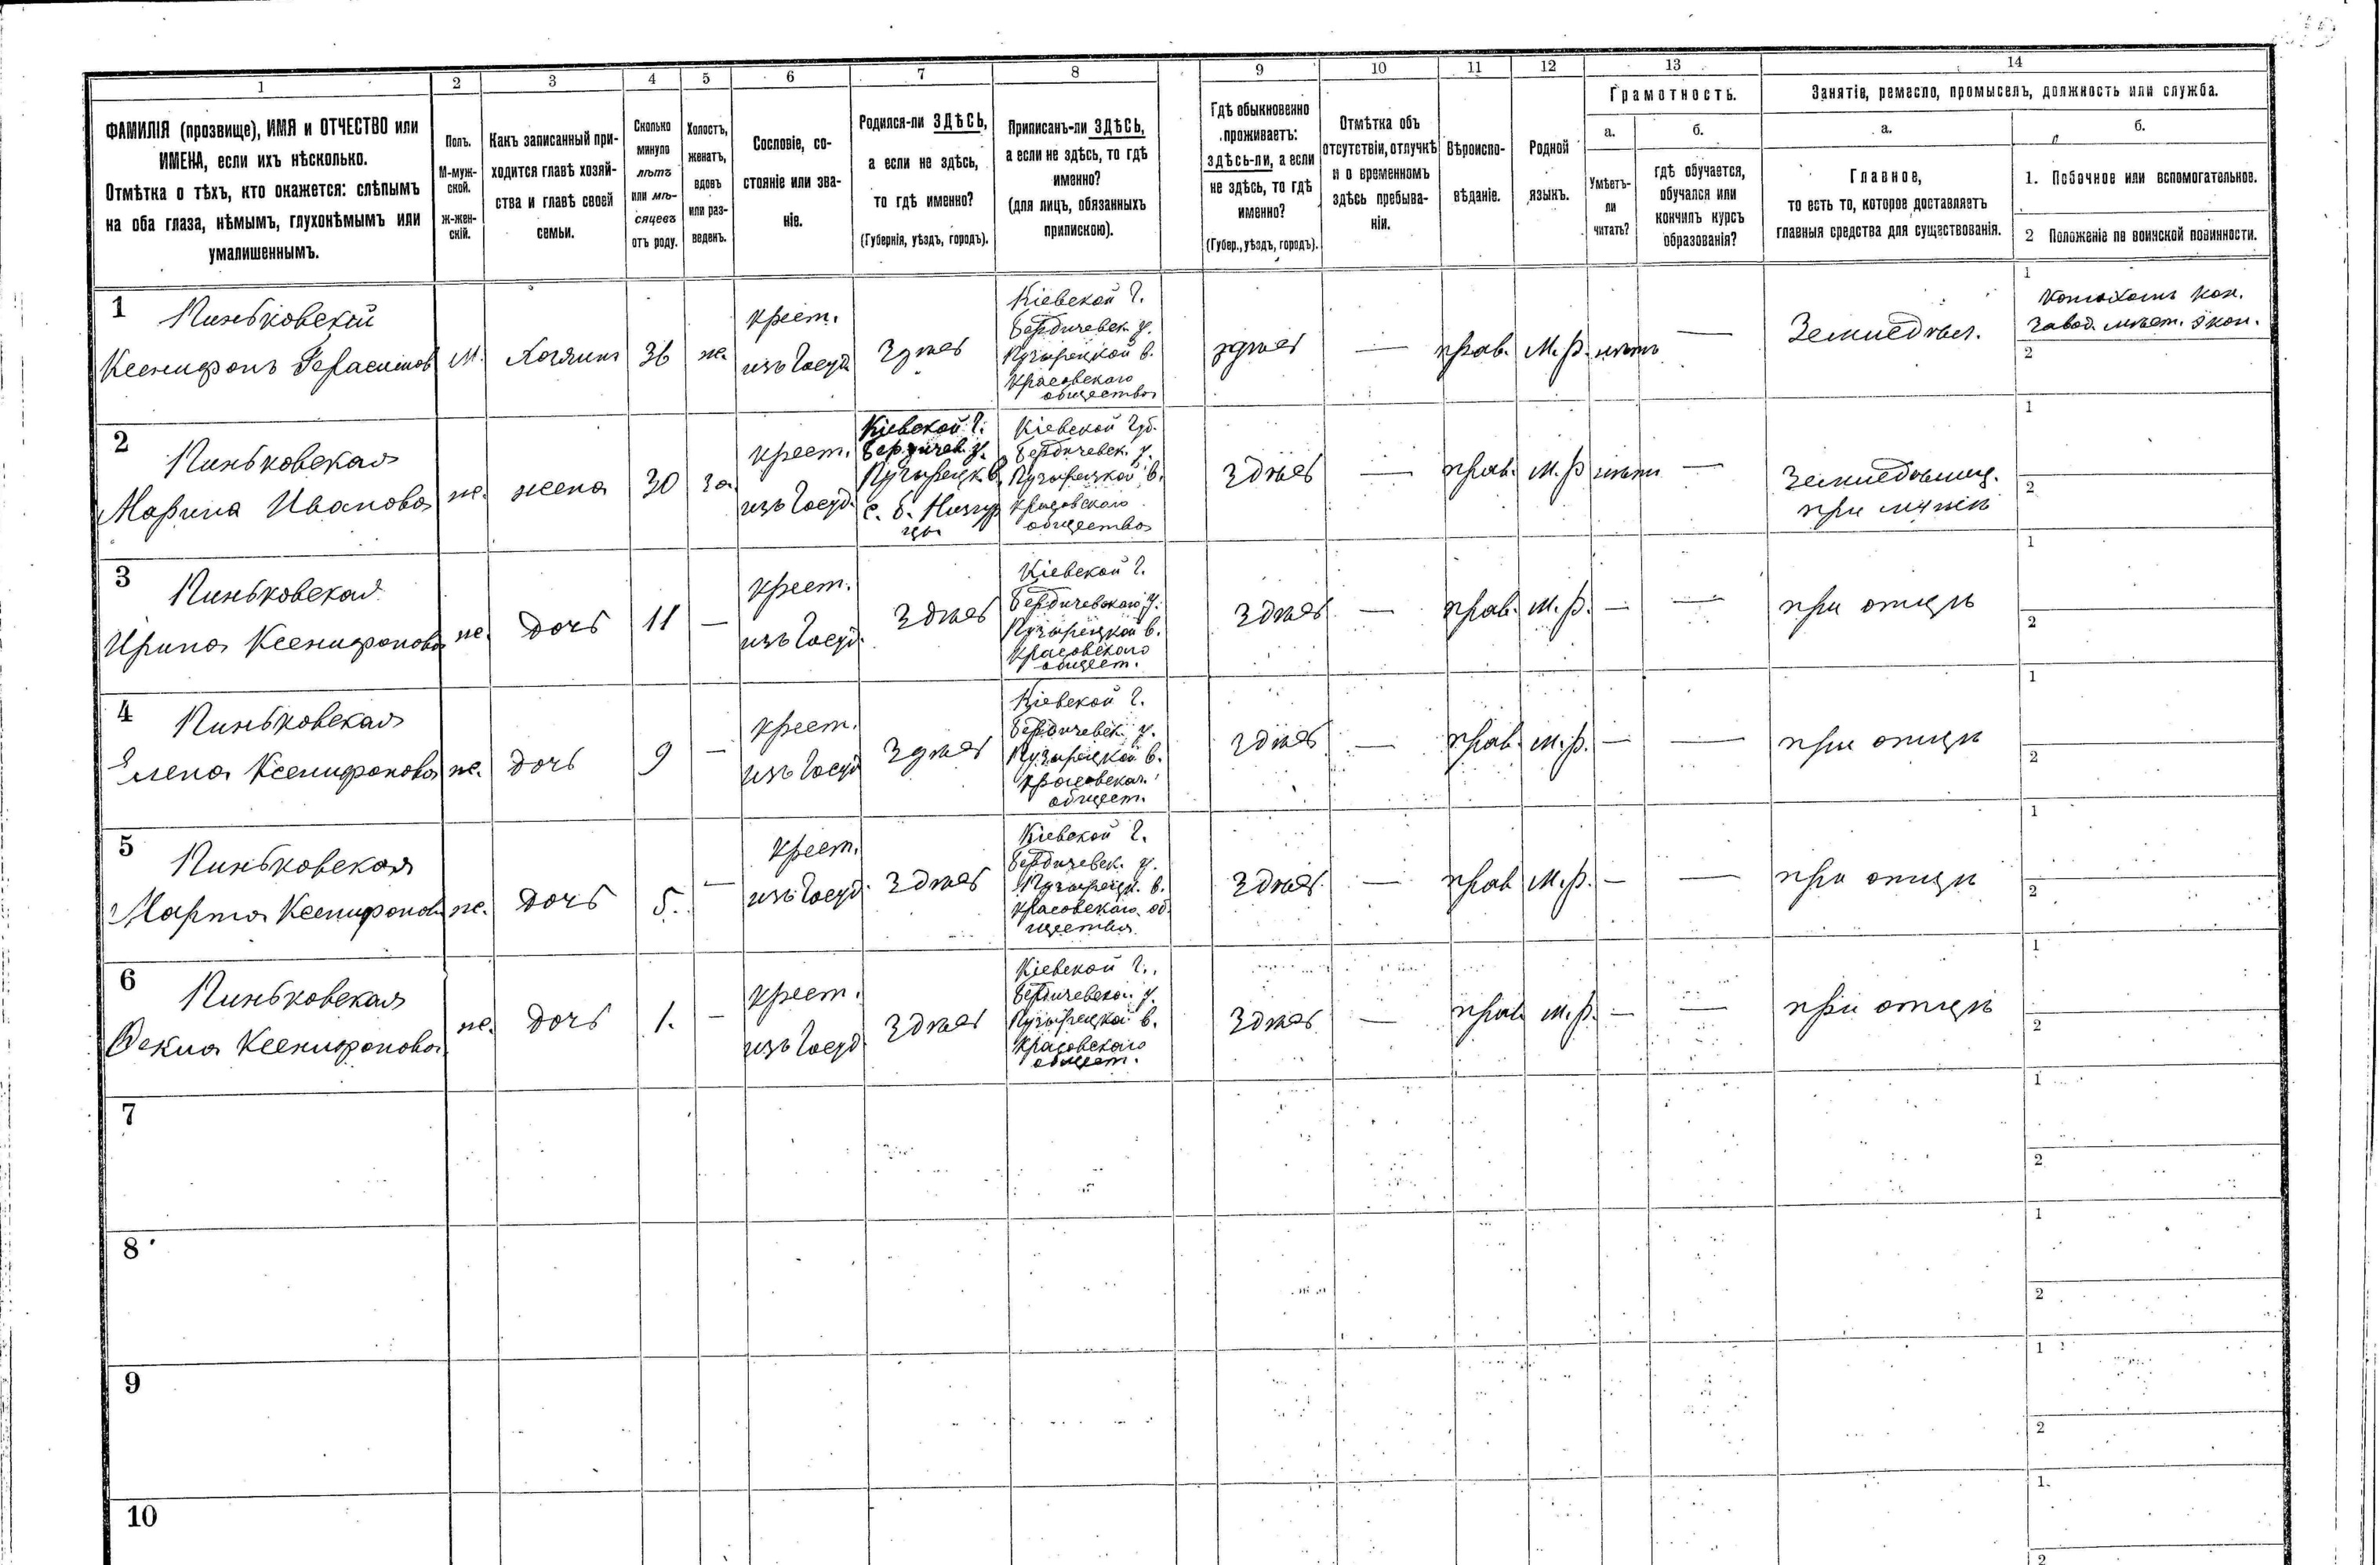 1 2 3 4 5 6 7 8 9 10 11 12 13 14
ФАМИЛІЯ (прозвище), ИМЯ и ОТЧЕСТВО или
ИМЕНА, если ихъ нѣсколько.
Отмѣтка о тѣхъ, кто окажется: слѣпымъ
на оба глаза, нѣмымъ, глухонѣмымъ или
умалишеннымъ.
Полъ.
М-муж-
ской.
Ж-жен-
скій.
Какъ записанный при-
ходится главѣ хозяй-
ства и главѣ своей
семьи.
Сколько
минуло
лѣтъ
или мѣ-
сяцевъ
отъ роду.
Холостъ,
женатъ,
вдовъ
или раз-
веденъ.
Сословіе, со-
стояніе или зва-
ніе.
Родился-ли ЗДѢСЬ,
а если не здѣсь,
то гдѣ именно?
(Губернія, уѣздъ, городъ).
Приписанъ-ли ЗДѢСЬ,
а если не здѣсь, то гдѣ
именно?
(для лицъ, обязанныхъ
припискою).
Гдѣ обыкновенно
проживаетъ:
здѣсь-ли, а если
не здѣсь, то гдѣ
именно?
(Губер., уѣздъ, городъ).
Отмѣтка объ
отсутствіи, отлучкѣ
и о временномъ
здѣсь пребыва-
ніи.
Вѣроиспо-
вѣданіе.
Родной
языкъ.
Грамотность.
а.
Умѣетъ-
ли
читать?
б.
гдѣ обучается,
обучался или
кончилъ курсъ
образованія?
Занятіе, ремесло, промыселъ, должность или служба.
а.
Главное,
то есть то, которое доставляетъ
главныя средства для существованія.
б.
1. Побочное или вспомогательное.
2 Положеніе по воинской повинности.
1
Пиньковскій
Ксенифонъ Герасимов
М.
Хозяинъ
36
ж.
крест.
изъ госуд.
Здѣсь
Кіевской г.
Бердичевск. у.
Пузырецкой в.
Красовскаго
общества
здѣсь
—
прав.
М. р.
нѣтъ
—
Земледѣл.
1
завод. экон.
2
2
Пиньковская
Марина Иванова
ж.
жена
30
за.
крест.
изъ госуд.
Кіевской г.
Бердичев. у.
Пузырецк. в.
с. Б. Низгур
цы
Кіевской губ.
Бердичевск. у.
Пузырецкой в.
Красовскаго
общества
Здѣсь
—
прав.
М. р.
нѣтъ
—
при мужѣ
1
2
3
Пиньковская
Ирина Ксенифонова
ж.
дочь
11
—
крест.
изъ госуд.
Здѣсь
Кіевской г.
Бердичевскаго у.
Пузырецкой в.
Красовскаго
общест.
Здѣсь
—
прав.
М. р.
—
—
при отцѣ
1
2
4
Пиньковская
Елена Ксенифонова
ж.
дочь
9
—
крест.
изъ госуд.
Здѣсь
Кіевской г.
Бердичевск. у.
Пузырецкой в.
Красовскаг.
общест.
здѣсь
—
прав.
м. р.
—
—
при отцѣ
1
2
5
Пиньковская
Марта Ксенифонов
ж.
дочь
5.
—
крест.
изъ госуд.
Здѣсь
Кіевской г.
Бердичевск. у.
Пузырецк. в.
Красовскаго об
щества
Здѣсь
—
прав
М. р.
—
—
при отцѣ
1
2
6
Пиньковская
Векла Ксенифонова
ж.
дочь
1.
—
крест.
изъ госуд
Здѣсь
Кіевской г.
Бердичевск. у.
Пузырецкой в.
Красовскаго
общест.
Здѣсь
—
прав.
м. р.
—
—
при отцѣ
1
2
7
1
2
8
1
2
9
1
2
10
1.
2